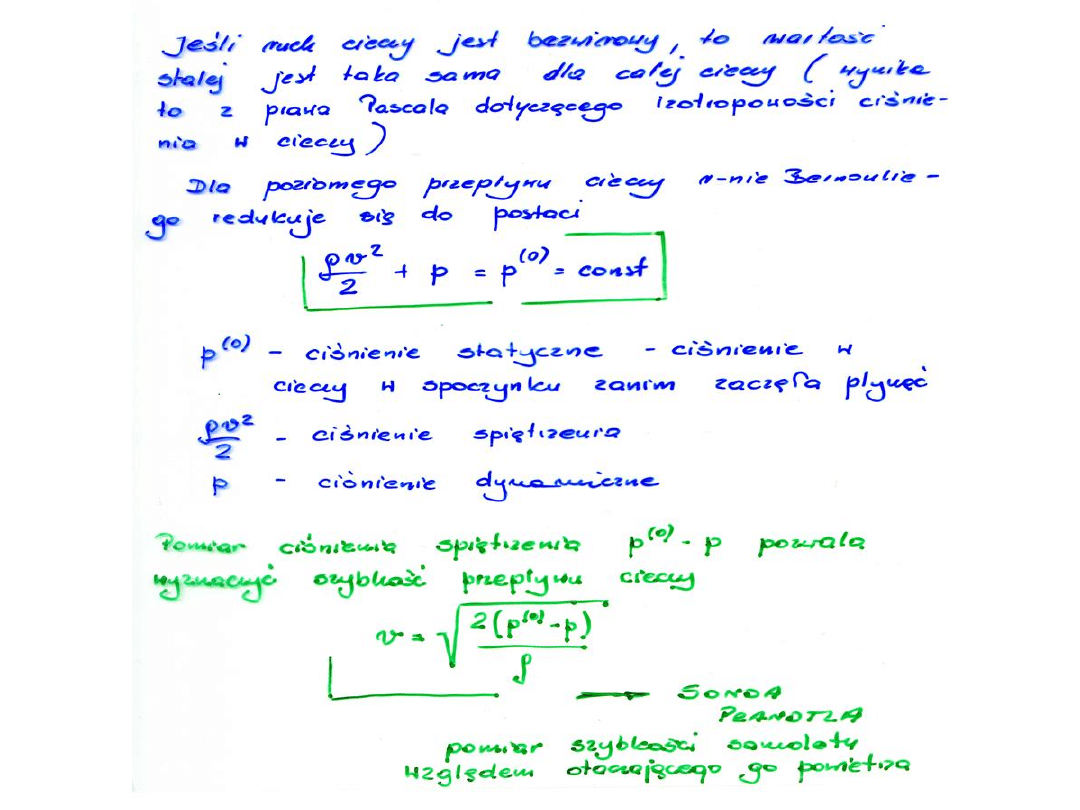 Jeśli ruch cieczy jest bezwirowy, to wartość
stałej jest taka sama dla całej cieczy (wynika
to z prawa Pascala dotyczącego izotroponości ciśnie-
nia w cieczy)
Dla poziomego przepływu cieczy r-nie Bernoulie-
go redukuje się do postaci
ρv²/2 + p = p⁽⁰⁾ = const
p⁽⁰⁾ - ciśnienie statyczne - ciśnienie w
cieczy w spoczynku zanim zaczęła płynąć
ρv²/2 - ciśnienie spiętrzenia
p - ciśnienie dynamiczne
Pomiar ciśnienia spiętrzenia p⁽⁰⁾ - p pozwala
wyznaczyć szybkość przepływu cieczy
v = √(2(p⁽⁰⁾ - p)/ρ)
→ SONDA
PRANDTLA
pomiar szybkości samolotu
względem otaczającego go powietrza